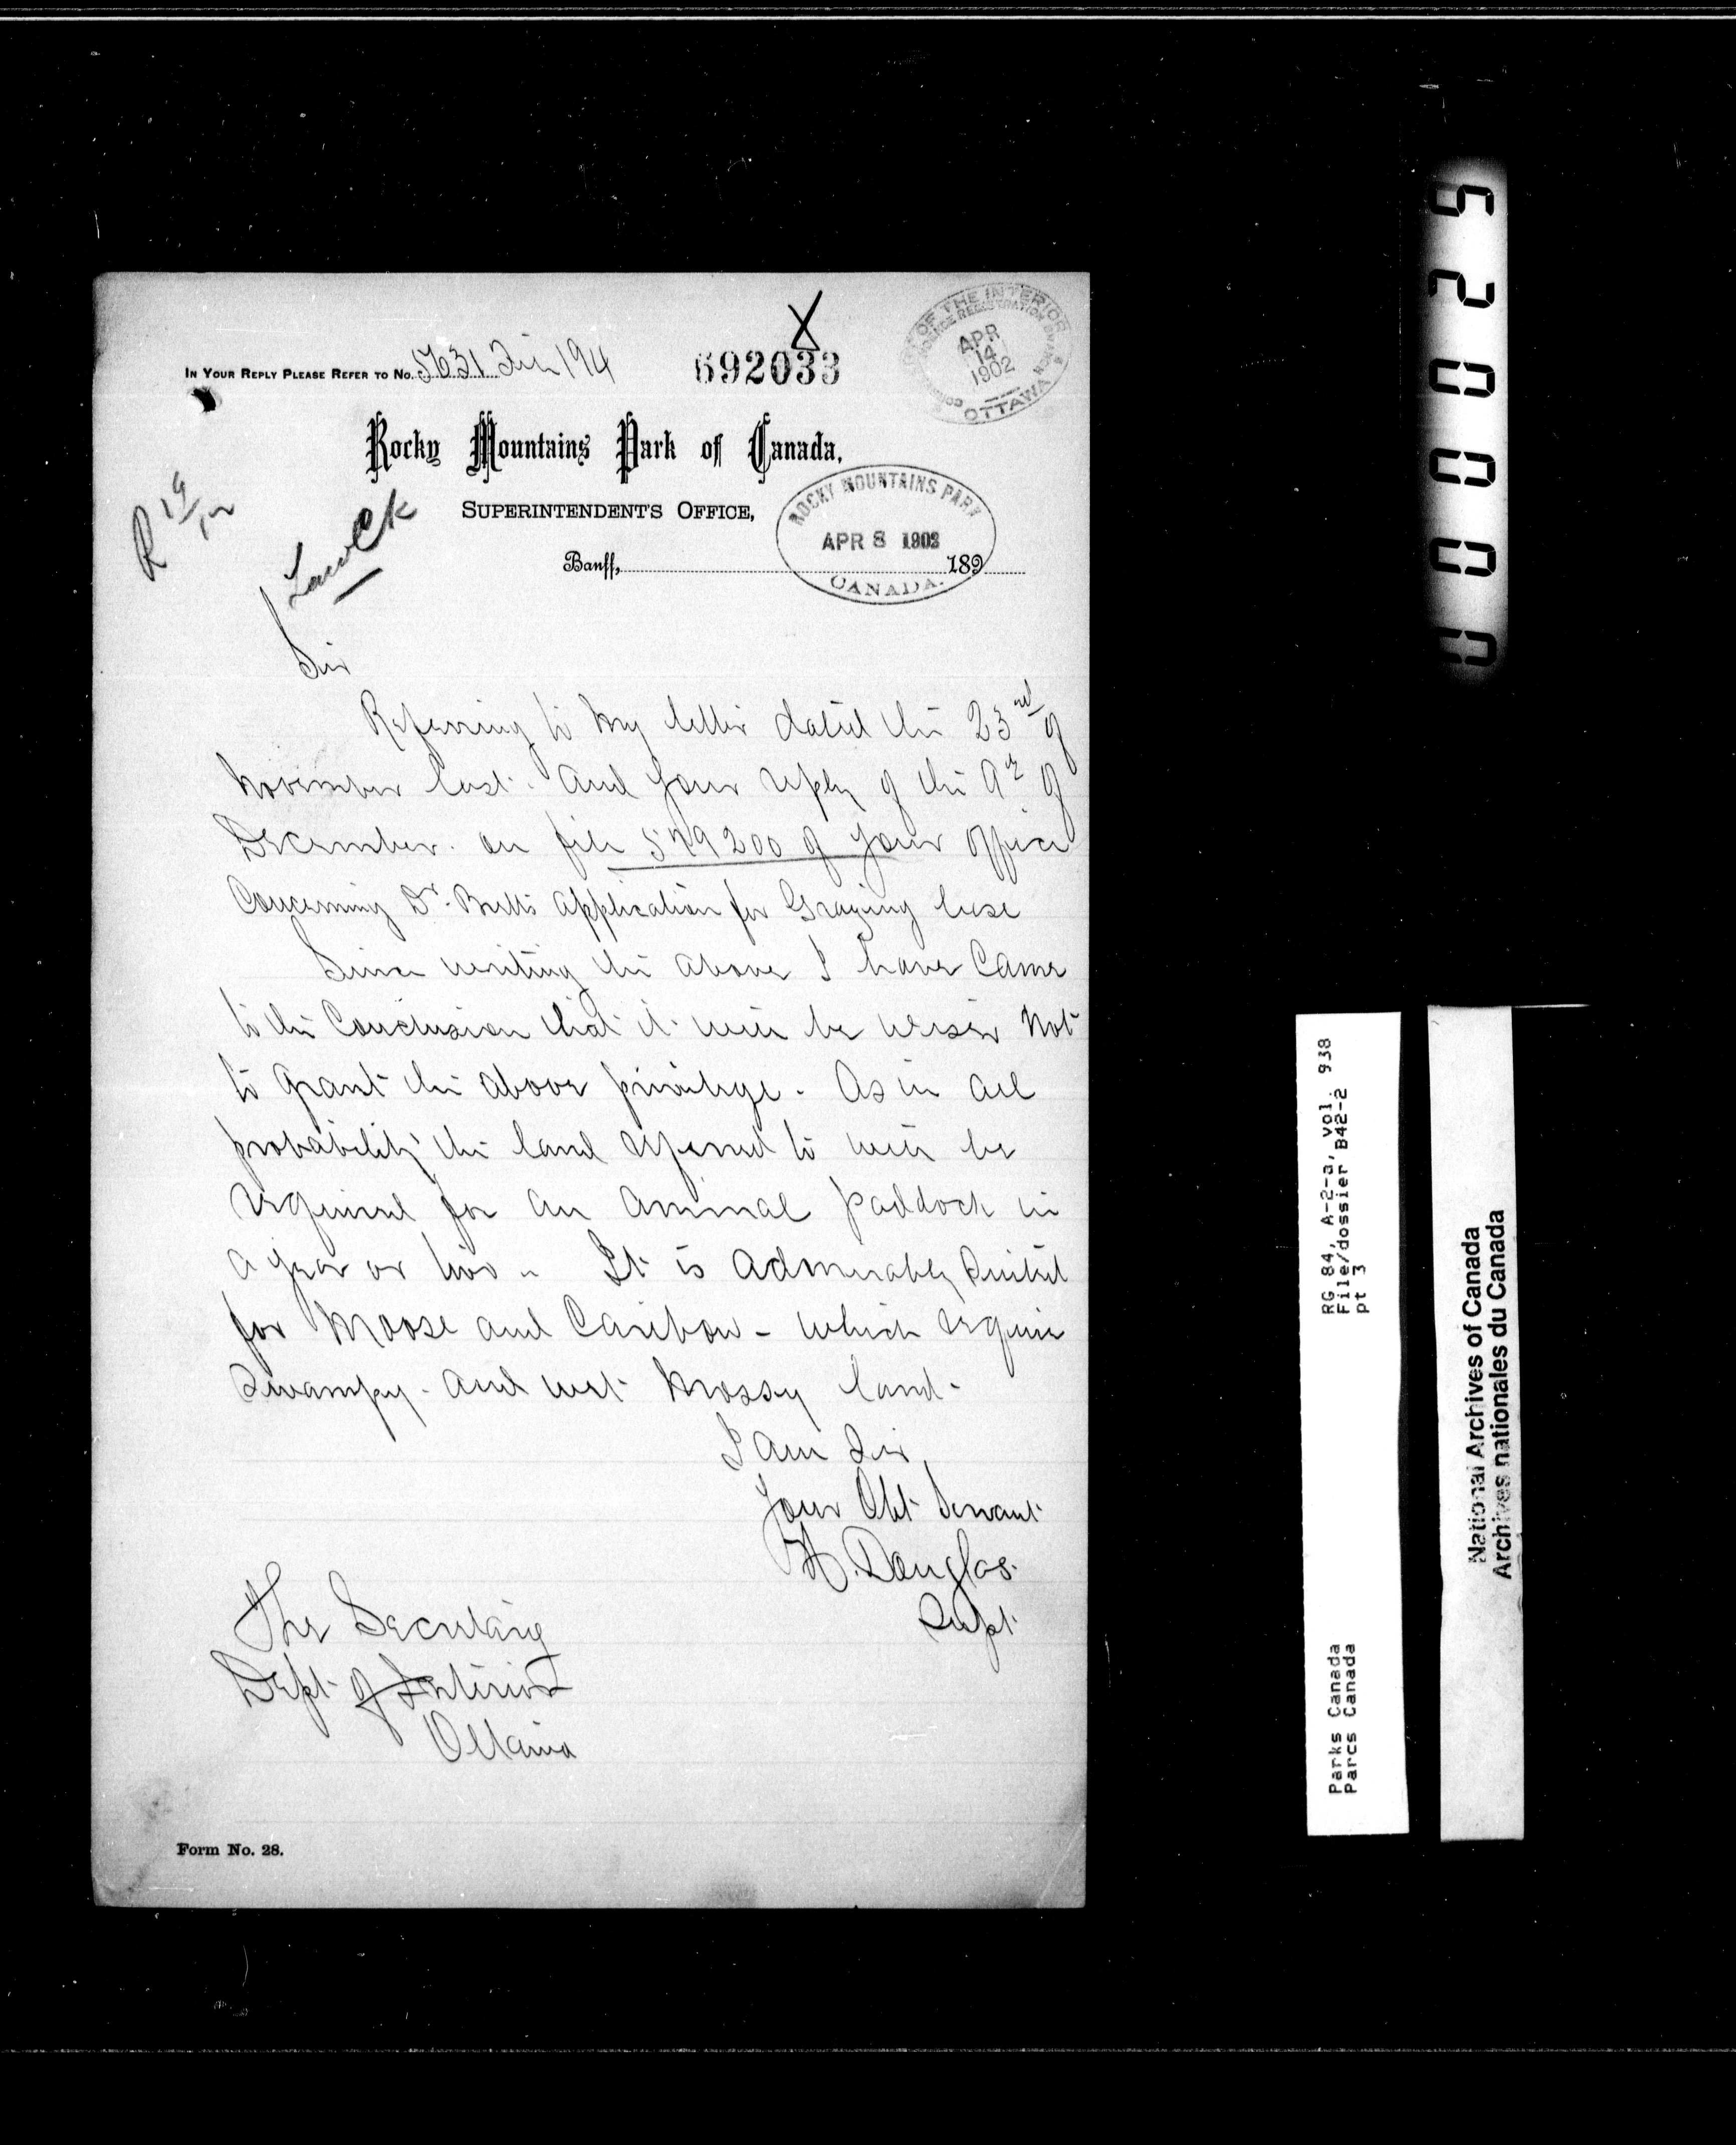 IN YOUR REPLY PLEASE REFER TO No. 5631
692033
X
OF THE INTERIOR
REGISTRATION BRANCH
APR
14
1902
OTTAWA
Rocky Mountains Park of Canada,
SUPERINTENDENT'S OFFICE,
ROCKY MOUNTAINS PARK
APR 8 1902
CANADA.
Banff, 189
R
Sir
Referring to my letter dated the 23rd of
November last. And your reply of the 9th of
December. on file 579200 of your office
Concerning Dr. Bretts application for Grazing lease
Since writing the above I have Came
to the Conclusion that it will be wiser Not
to grant the above privilege. As in all
probability the land referred to will be
required for an animal paddock in
a year or two - It is admirably suited
for Moose and Caribou - which require
swampy - and wet mossy land -
I am Sir
Your Obt Servant
H. Douglas.
Supt
The Secretary
Dept of Interior
Ottawa
Form No. 28.
52000
RG 84, A-2-a, vol. 938
File/dossier B42-2
pt 3
Parks Canada
Parcs Canada
National Archives of Canada
Archives nationales du Canada